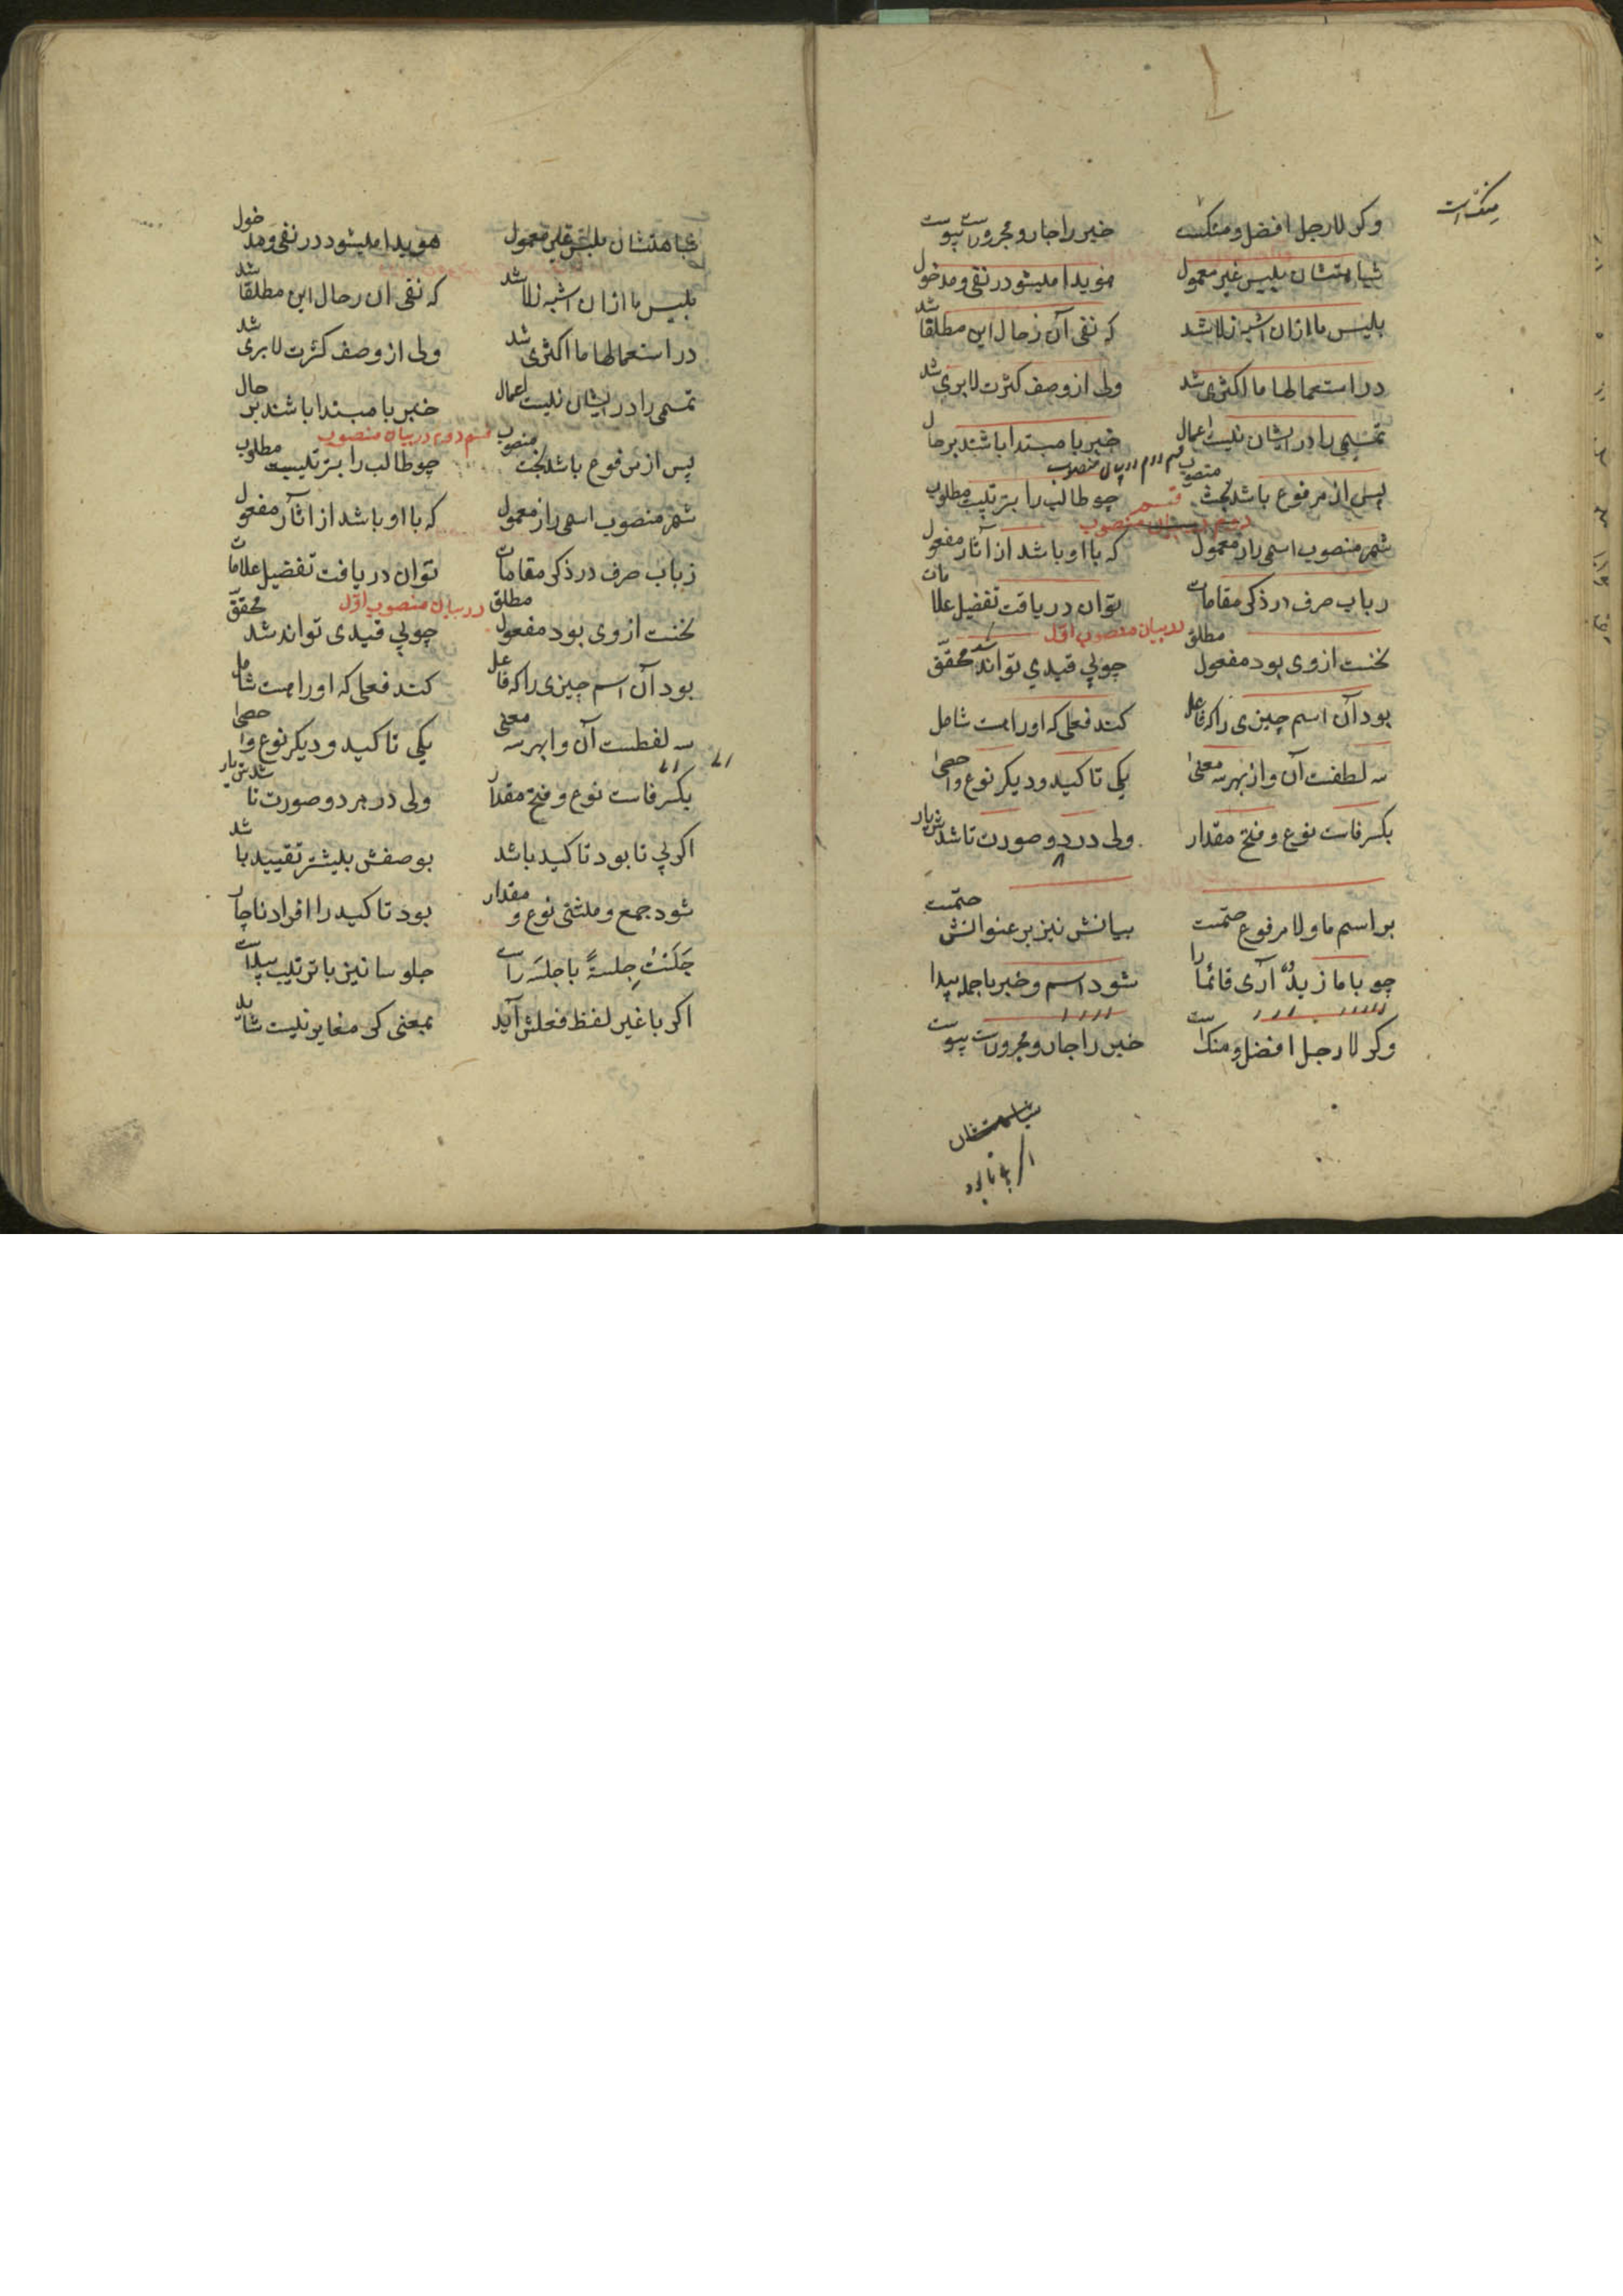 منکست
وکر لا رجل افضل ومنکست خبر را جار و مجرورست پیوست
شباهتشان بلیس غیر معمول هویدا میشود در نفی و مدخول
بلیس ما ازان اشبه ز لا شد که نفی آن ز حال این مطلقا شد
در استعمالها ما اکثری شد ولی از وصف کثرت لا بری شد
تمیمی را در ایشان نیست اعمال خبر با مبتدا باشند بر حال
قسم دوم در بیان منصوب
پس از مرفوع باشد بحث منصوب چو طالب را بترتیبست مطلوب
قسم دوم در بیان منصوب
شمر منصوب اسمی را ز معمول که با او باشد از آثار مفعول
ز باب صرف در ذکر مقامات توان دریافت تفضیل علامات
در بیان منصوب اول
نخست از وی بود مفعول مطلق چو بی قیدی تواند شد محقق
بود آن اسم چیزی را که فاعل کند فعلی که او راست شامل
سه لفظست آن و از بهر سه معنی یکی تاکید و دیکر نوع و احصی
بکسر فاست نوع و فتح مقدار ولی در دو صورت تا شدش یار
بر اسم ما و لا مرفوع ختمست بیانش نیز بر عنوانش ختمست
چو با ما زیدٌ آری قائمًا را شود اسم و خبر با جمله پیدا
وکر لا رجل افضل و منک است خبر را جار و مجرورست پیوست
شباهتشان
اکر بی تا بود
شباهتشان بلیس غیر معمول هویدا میشود در نفی و مدخول
بلیس ما ازان اشبه ز لا شد که نفی آن ز حال این مطلقا شد
در استعمالها ما اکثری شد ولی از وصف کثرت لا بری شد
تمیمی را در ایشان نیست اعمال خبر با مبتدا باشند بر حال
قسم دوم در بیان منصوب
پس از مرفوع باشد بحث منصوب چو طالب را بترتیبست مطلوب
شمر منصوب اسمی را ز معمول که با او باشد از آثار مفعول
ز باب صرف در ذکر مقامات توان دریافت تفضیل علامات
در بیان منصوب اول
نخست از وی بود مفعول مطلق چو بی قیدی تواند شد محقق
بود آن اسم چیزی را که فاعل کند فعلی که او راست شامل
سه لفظست آن و از بهر سه معنی یکی تاکید و دیکر نوع و احصی
بکسر فاست نوع و فتح مقدار ولی در هر دو صورت تا شدش یار
اکر بی تا بود تاکید باشد بوصفش بیشتر تقیید باشد
شود جمع و مثنی نوع و مقدار بود تاکید را افراد ناچار
جَلَسْتُ جِلسةً با جلسَه راست جلوسا نیز با ترتیب پیداست
اکر با غیر لفظ فعلش آید بمعنی کر مغایر نیست شاید